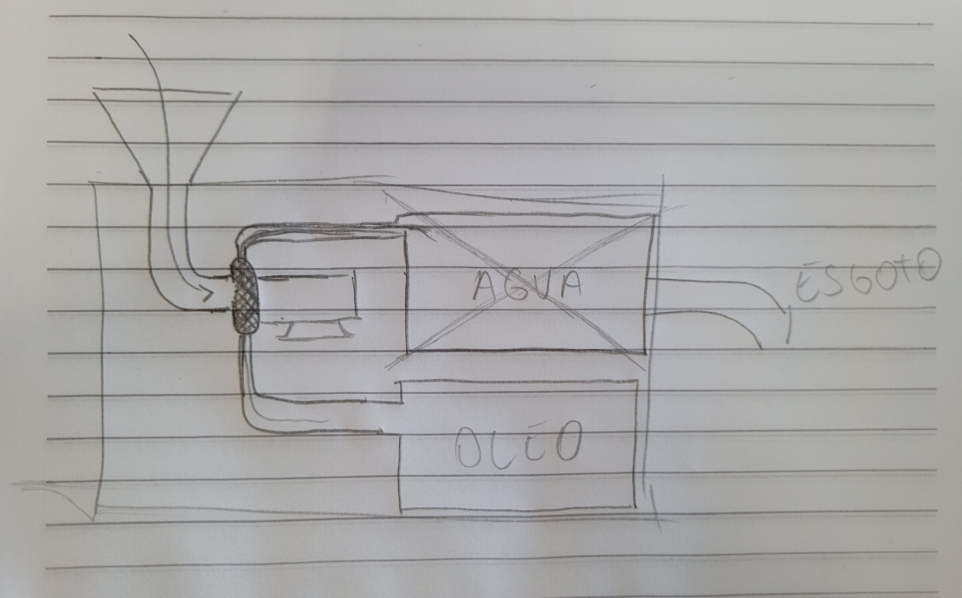 AGUA
ESGOTO
OLÉO